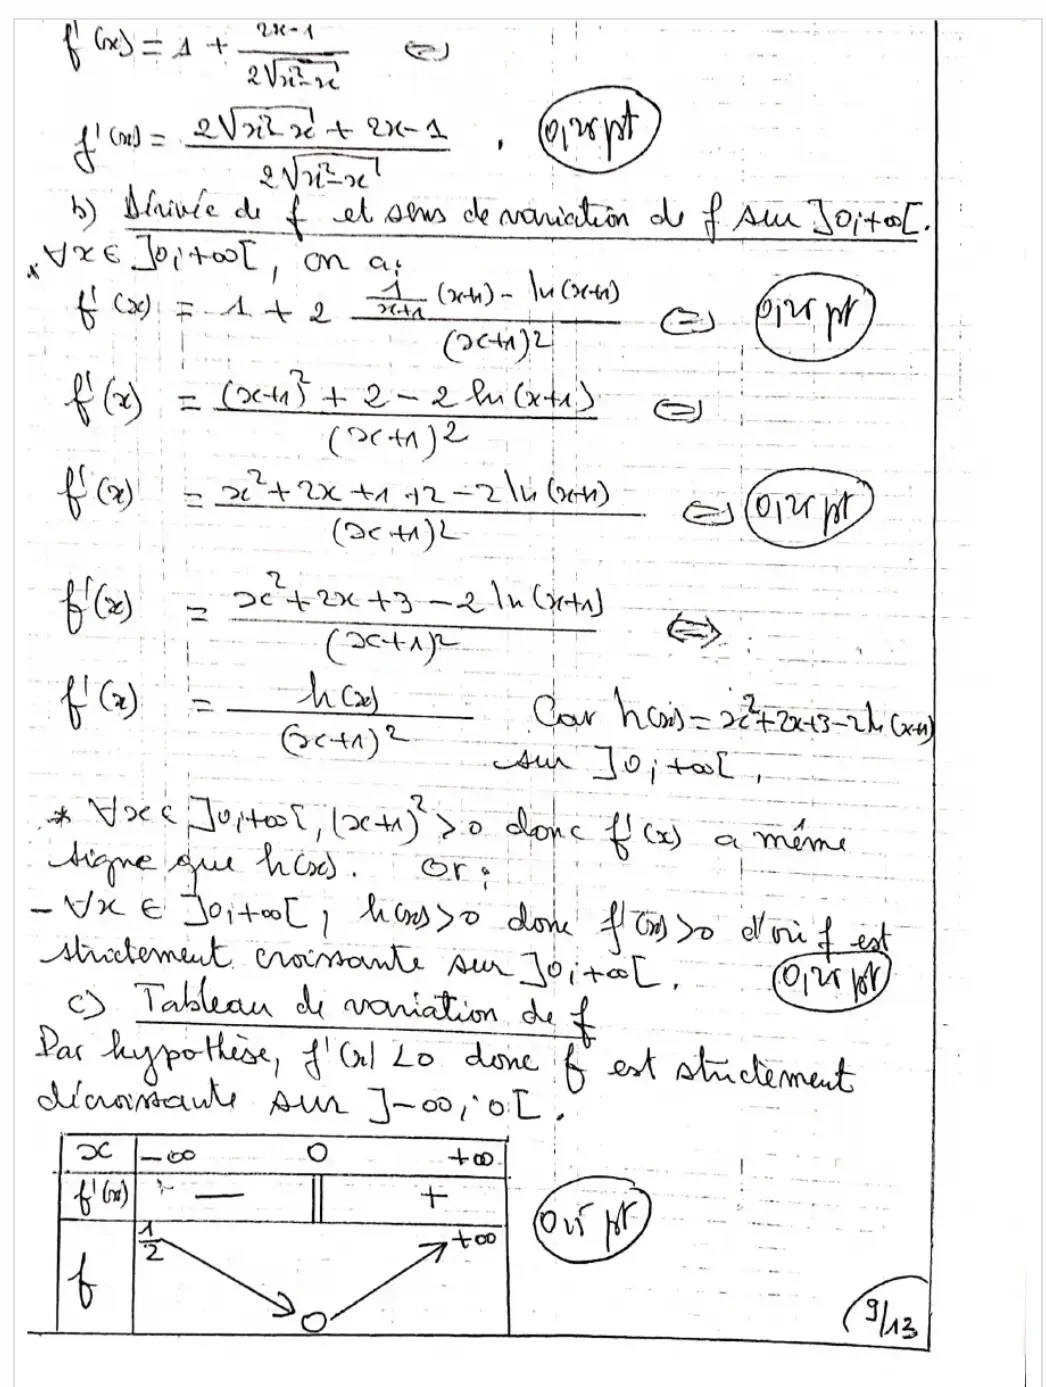 f'(x) = 1 + (2x-1)/(2√(x²-x)) ⇔
f'(x) = (2√(x²-x) + 2x-1)/(2√(x²-x)) . 0,25 pt
b) Dérivée de f et sens de variation de f sur ]0;+∞[.
* ∀x∈ ]0;+∞[, on a:
f'(x) = 1 + 2 (1/(x+1) (x+1) - ln(x+1))/(x+1)² ⇔ 0,25 pt
f'(x) = ((x+1)² + 2 - 2 ln(x+1))/(x+1)² ⇔
f'(x) = (x²+2x+1+2-2 ln(x+1))/(x+1)² ⇔ 0,25 pt
f'(x) = (x²+2x+3-2 ln(x+1))/(x+1)² ⇔
f'(x) = h(x)/(x+1)² Car h(x) = x²+2x+3-2ln(x+1)
sur ]0;+∞[.
* ∀x∈ ]0;+∞[, (x+1)²>0 donc f'(x) a même
signe que h(x). Or:
- ∀x ∈ ]0;+∞[, h(x)>0 donc f'(x)>0 d'où f est
strictement croissante sur ]0;+∞[. 0,25 pt
c) Tableau de variation de f
Par hypothèse, f'(x) <0 donc f est strictement
décroissante sur ]-∞; 0[.
x -∞ 0 +∞
f'(x) - || +
1/2 +∞
f 0
0,5 pt
9/13